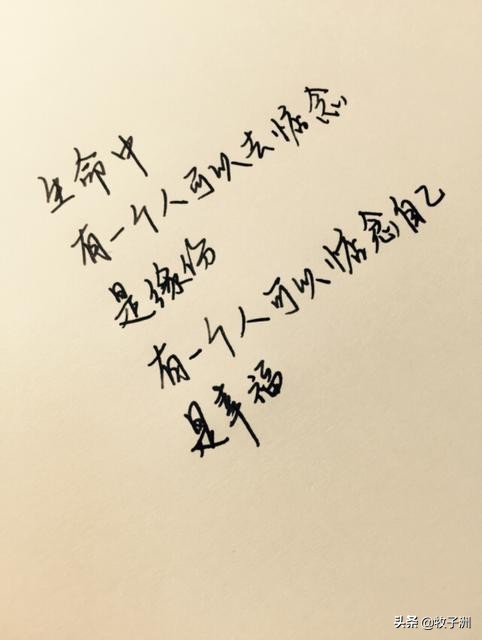 生命中
有一个人可以去惦念
是缘份
有一个人可以惦念自己
是幸福
头条 @牧子洲